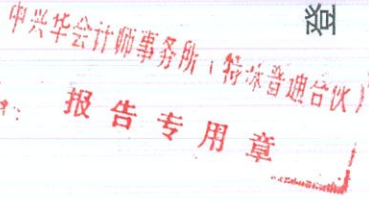 中兴华会计师事务所（特殊普通合伙）
登
报告专用章